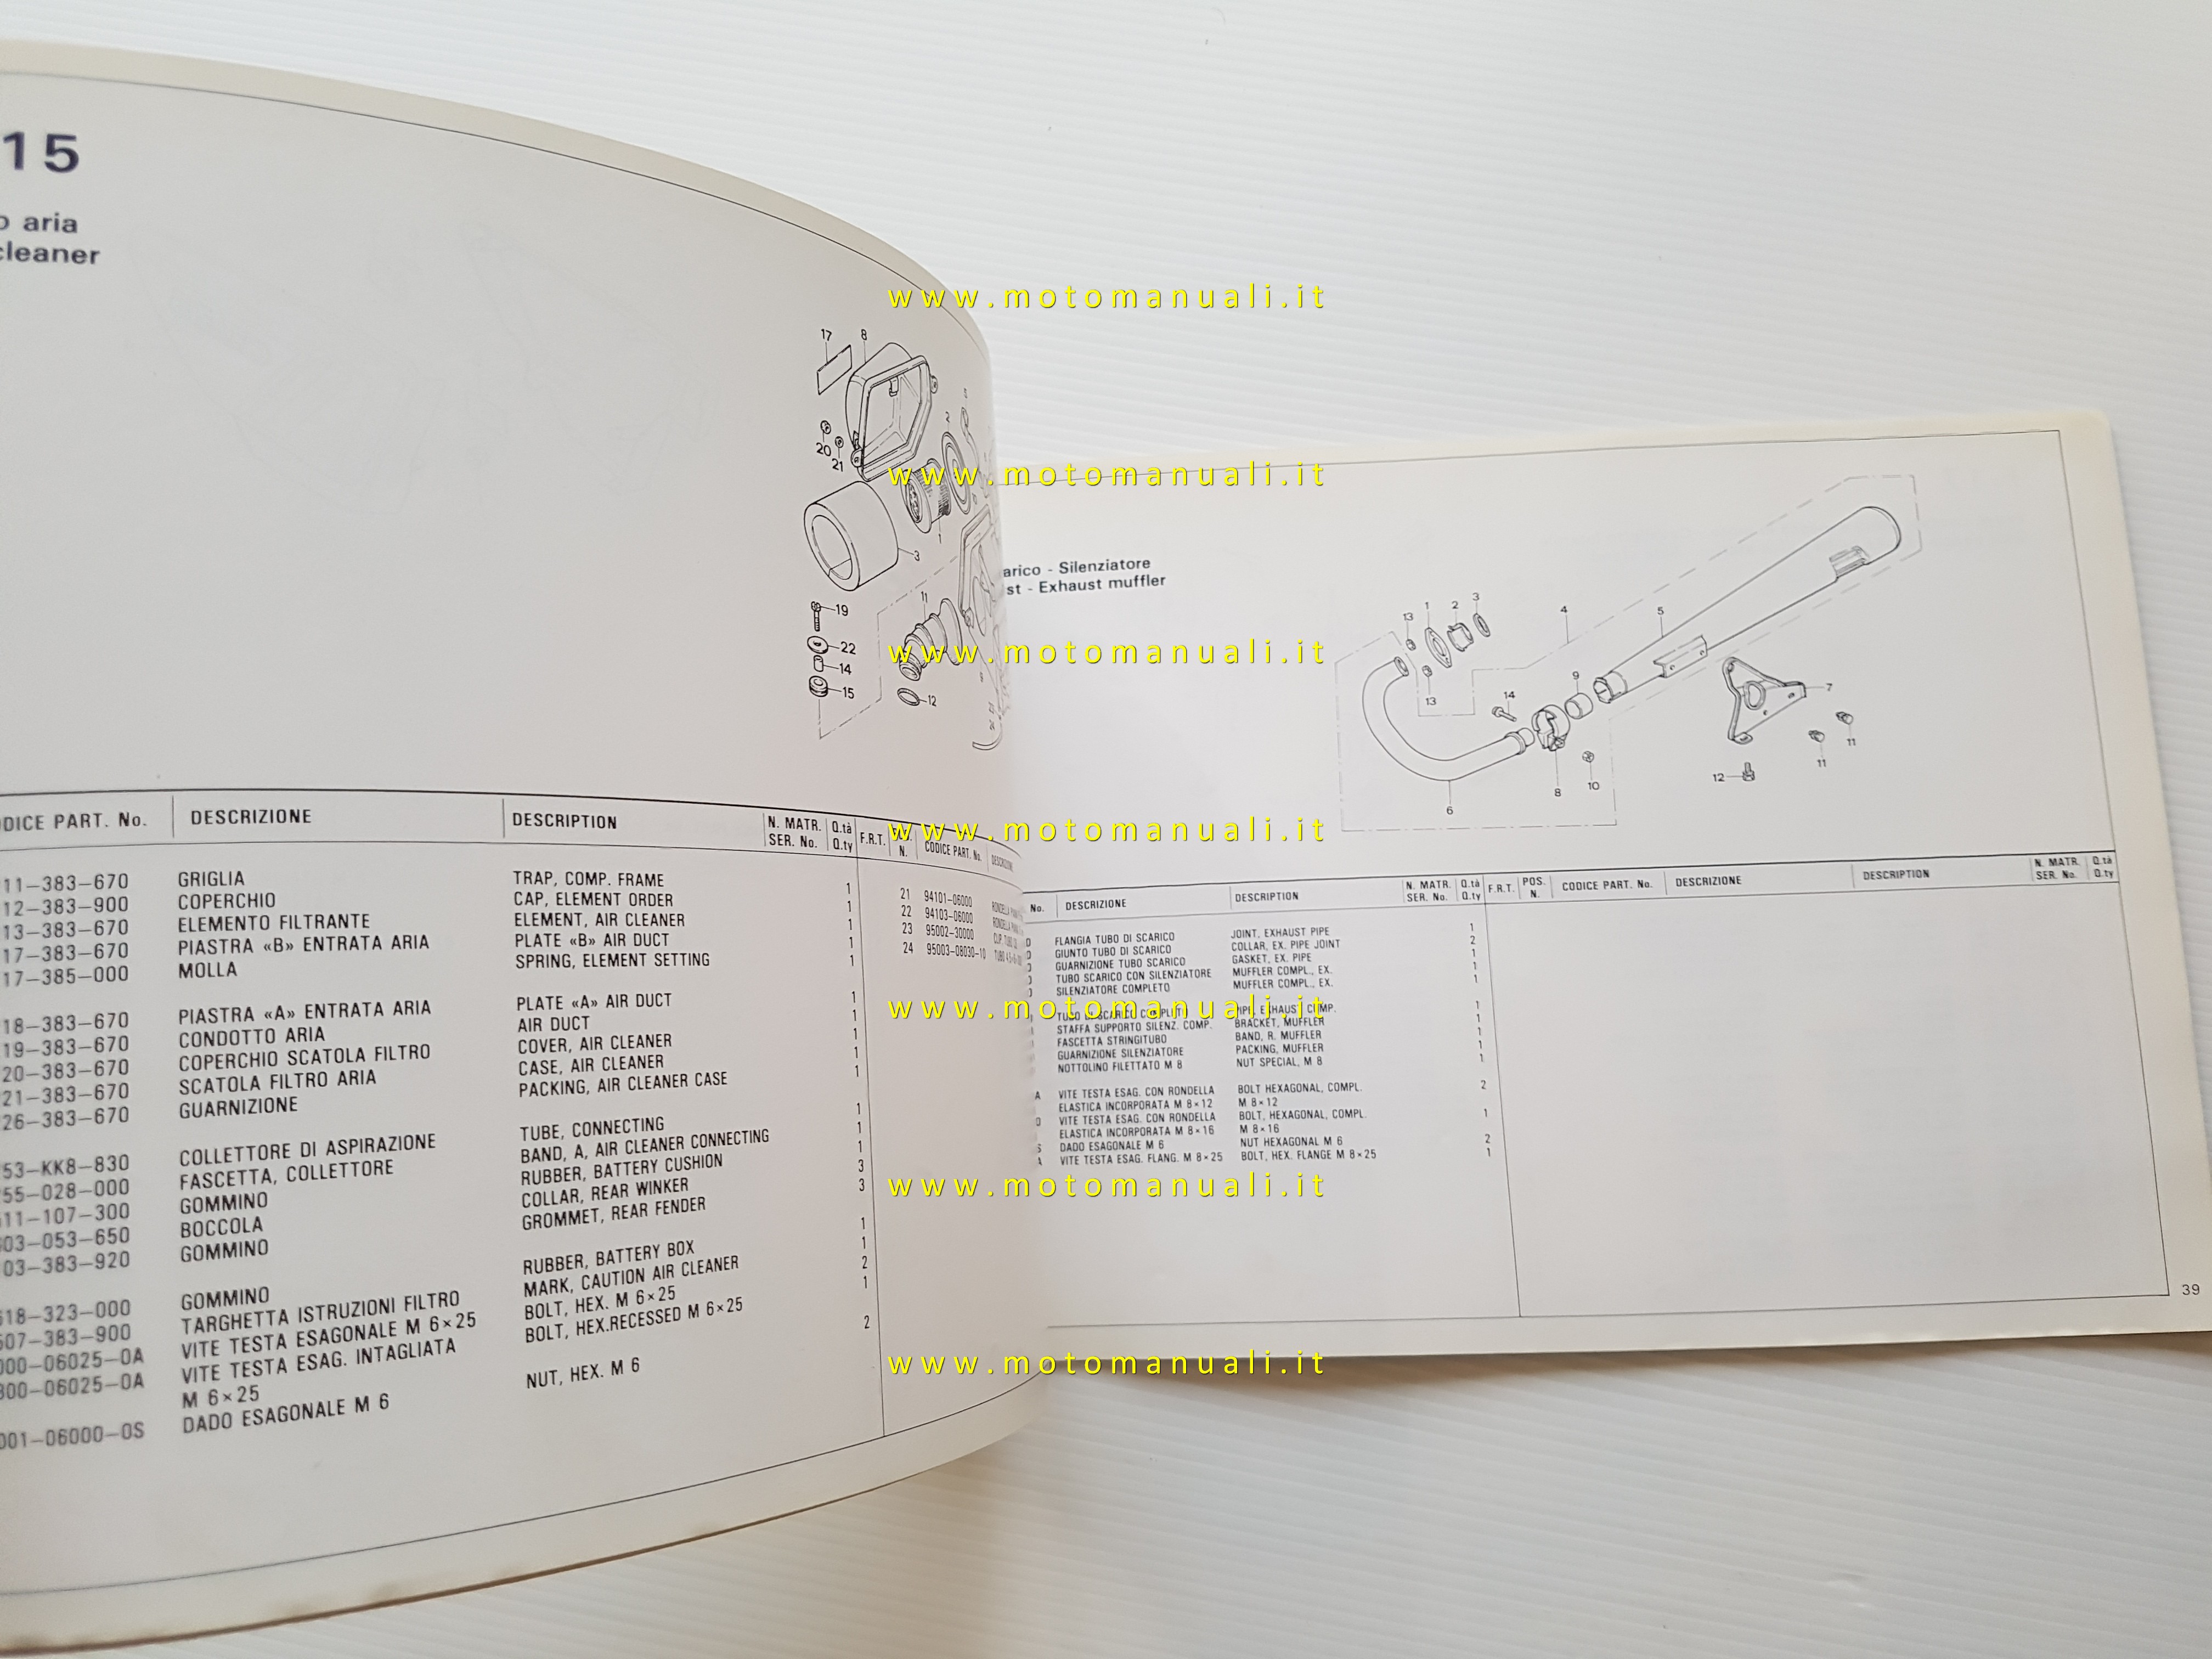 15
aria
cleaner
17 8
20
21
3
19
11
22
14
15
12
ODICE PART. No. DESCRIZIONE DESCRIPTION N. MATR. SER. No. Q.tà Q.ty F.R.T. N. CODICE PART. No. DESCRIZIONE
11-383-670 GRIGLIA TRAP, COMP. FRAME 1
12-383-900 COPERCHIO CAP, ELEMENT ORDER 1
13-383-670 ELEMENTO FILTRANTE ELEMENT, AIR CLEANER 1
17-383-670 PIASTRA «B» ENTRATA ARIA PLATE «B» AIR DUCT 1
17-385-000 MOLLA SPRING, ELEMENT SETTING 1
18-383-670 PIASTRA «A» ENTRATA ARIA PLATE «A» AIR DUCT 1
19-383-670 CONDOTTO ARIA AIR DUCT 1
20-383-670 COPERCHIO SCATOLA FILTRO COVER, AIR CLEANER 1
21-383-670 SCATOLA FILTRO ARIA CASE, AIR CLEANER 1
26-383-670 GUARNIZIONE PACKING, AIR CLEANER CASE 1
53-KK8-830 COLLETTORE DI ASPIRAZIONE TUBE, CONNECTING 1
55-028-000 FASCETTA, COLLETTORE BAND, A, AIR CLEANER CONNECTING 1
11-107-300 GOMMINO RUBBER, BATTERY CUSHION 1
03-053-650 BOCCOLA COLLAR, REAR WINKER 3
03-383-920 GOMMINO GROMMET, REAR FENDER 3
618-323-000 GOMMINO RUBBER, BATTERY BOX 1
507-383-900 TARGHETTA ISTRUZIONI FILTRO MARK, CAUTION AIR CLEANER 1
000-06025-0A VITE TESTA ESAGONALE M 6×25 BOLT, HEX. M 6×25 2
300-06025-0A VITE TESTA ESAG. INTAGLIATA BOLT, HEX.RECESSED M 6×25 1
M 6×25
001-06000-0S DADO ESAGONALE M 6 NUT, HEX. M 6 2
21 94101-06000
22 94103-06000
23 95002-30000
24 95003-08030-10
arico - Silenziatore
st - Exhaust muffler
13 1 2 3 4 5
13 14 9 7
11
11
12
10
8
6
No. DESCRIZIONE DESCRIPTION N. MATR. SER. No. Q.tà Q.ty F.R.T. POS. N. CODICE PART. No. DESCRIZIONE DESCRIPTION N. MATR. SER. No. Q.tà Q.ty
FLANGIA TUBO DI SCARICO JOINT, EXHAUST PIPE 1
GIUNTO TUBO DI SCARICO COLLAR, EX. PIPE JOINT 2
GUARNIZIONE TUBO SCARICO GASKET, EX. PIPE 1
TUBO SCARICO CON SILENZIATORE MUFFLER COMPL., EX. 1
SILENZIATORE COMPLETO MUFFLER COMPL., EX. 1
TUBO DI SCARICO COMPLETO PIPE, EXHAUST COMP. 1
STAFFA SUPPORTO SILENZ. COMP. BRACKET, MUFFLER 1
FASCETTA STRINGITUBO BAND, R. MUFFLER 1
GUARNIZIONE SILENZIATORE PACKING, MUFFLER 1
NOTTOLINO FILETTATO M 8 NUT SPECIAL, M 8 1
A VITE TESTA ESAG. CON RONDELLA BOLT HEXAGONAL, COMPL. 2
ELASTICA INCORPORATA M 8×12 M 8×12
VITE TESTA ESAG. CON RONDELLA BOLT, HEXAGONAL, COMPL. 1
ELASTICA INCORPORATA M 8×16 M 8×16
S DADO ESAGONALE M 6 NUT HEXAGONAL M 6 2
A VITE TESTA ESAG. FLANG. M 8×25 BOLT, HEX. FLANGE M 8×25 1
39
www.motomanuali.it
www.motomanuali.it
www.motomanuali.it
www.motomanuali.it
www.motomanuali.it
www.motomanuali.it
www.motomanuali.it